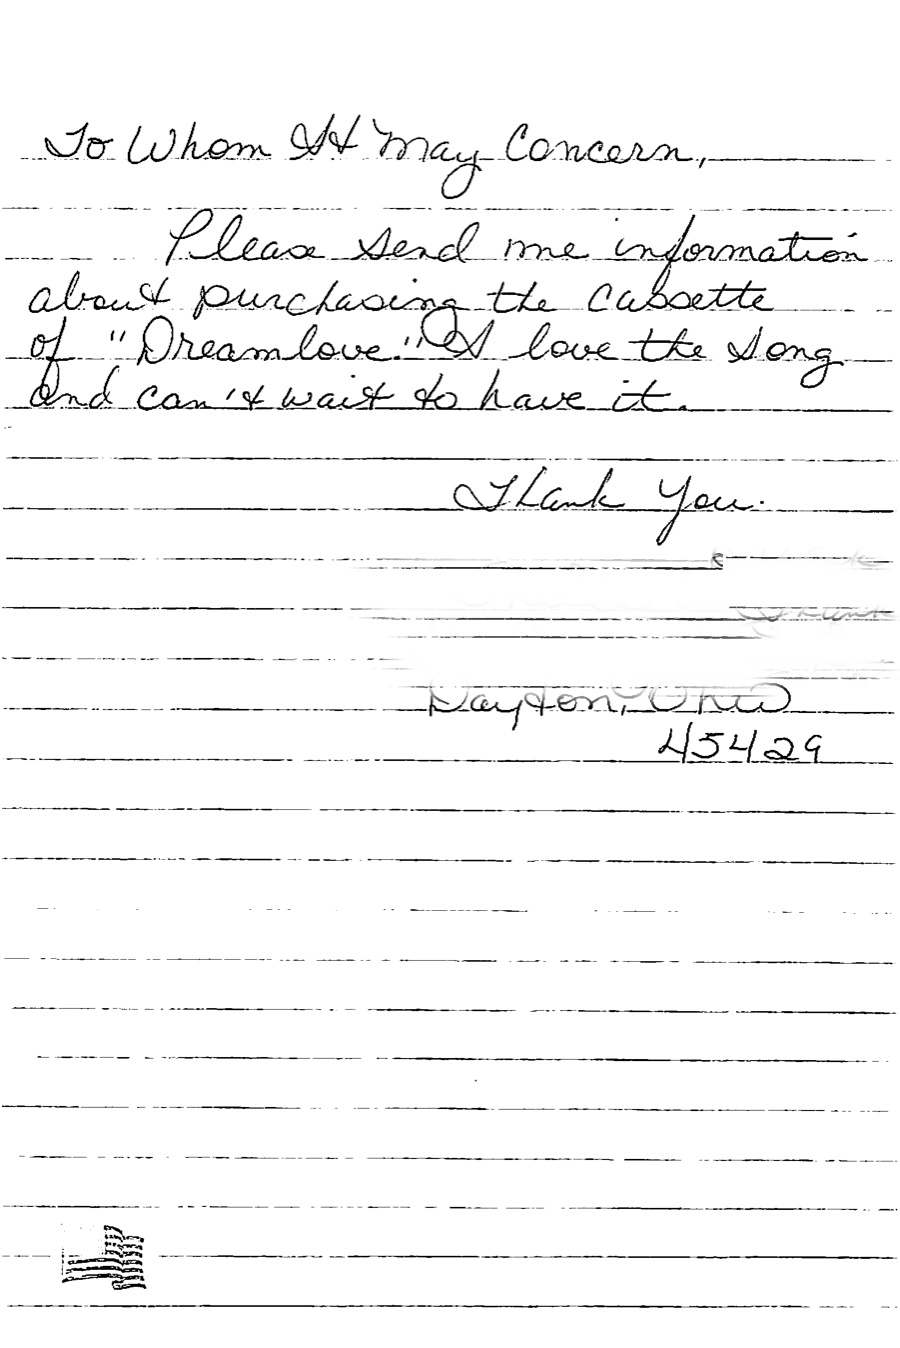 To Whom It May Concern,
Please send me information
about purchasing the cassette
of "Dreamlove." I love the song
and can't wait to have it.
Thank You.
Dayton, Ohio
45429